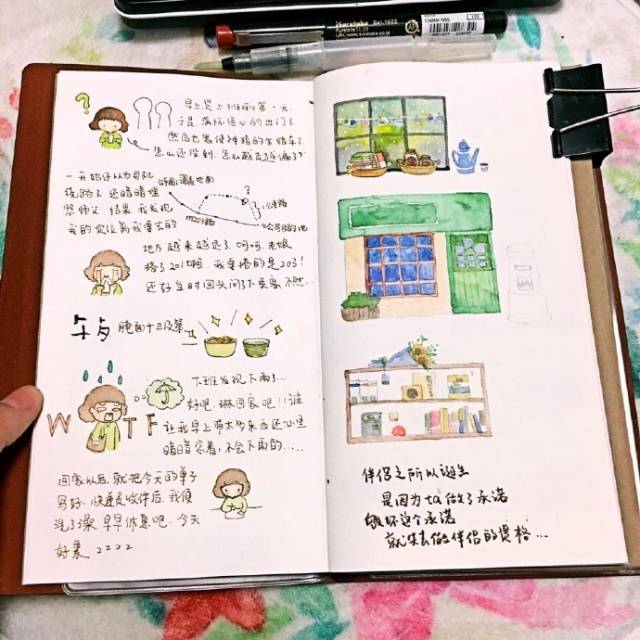 Kuretake
No.1602
?
早上是上班的第一天
于是满怀信心的出门了
然后也很使神怪的坐错车了
怎么还没到,怎么越走越偏了?
一开始还以为司机
线路了 还暗暗埋
怨师父 结果 我发现
我的定位离我要去的
地方 越来越远了.呵呵.老娘
搭了201啦 我要搭的是203!
还好当时回头问了下乘客 不然...
午与 腌面十三及第
W T F
下班发现下雨了...
好吧 淋回家吧!!谁
让我早上带太多东西还心里
暗暗念着,不会下雨的.....
回家以后,就把今天的单子
写好,快递员收件后,我便
洗了澡,早早休息吧,今天
好累 zzzz
伴侣之所以诞生
是因为ta做了承诺
破坏这个承诺
就失去做伴侣的资格...